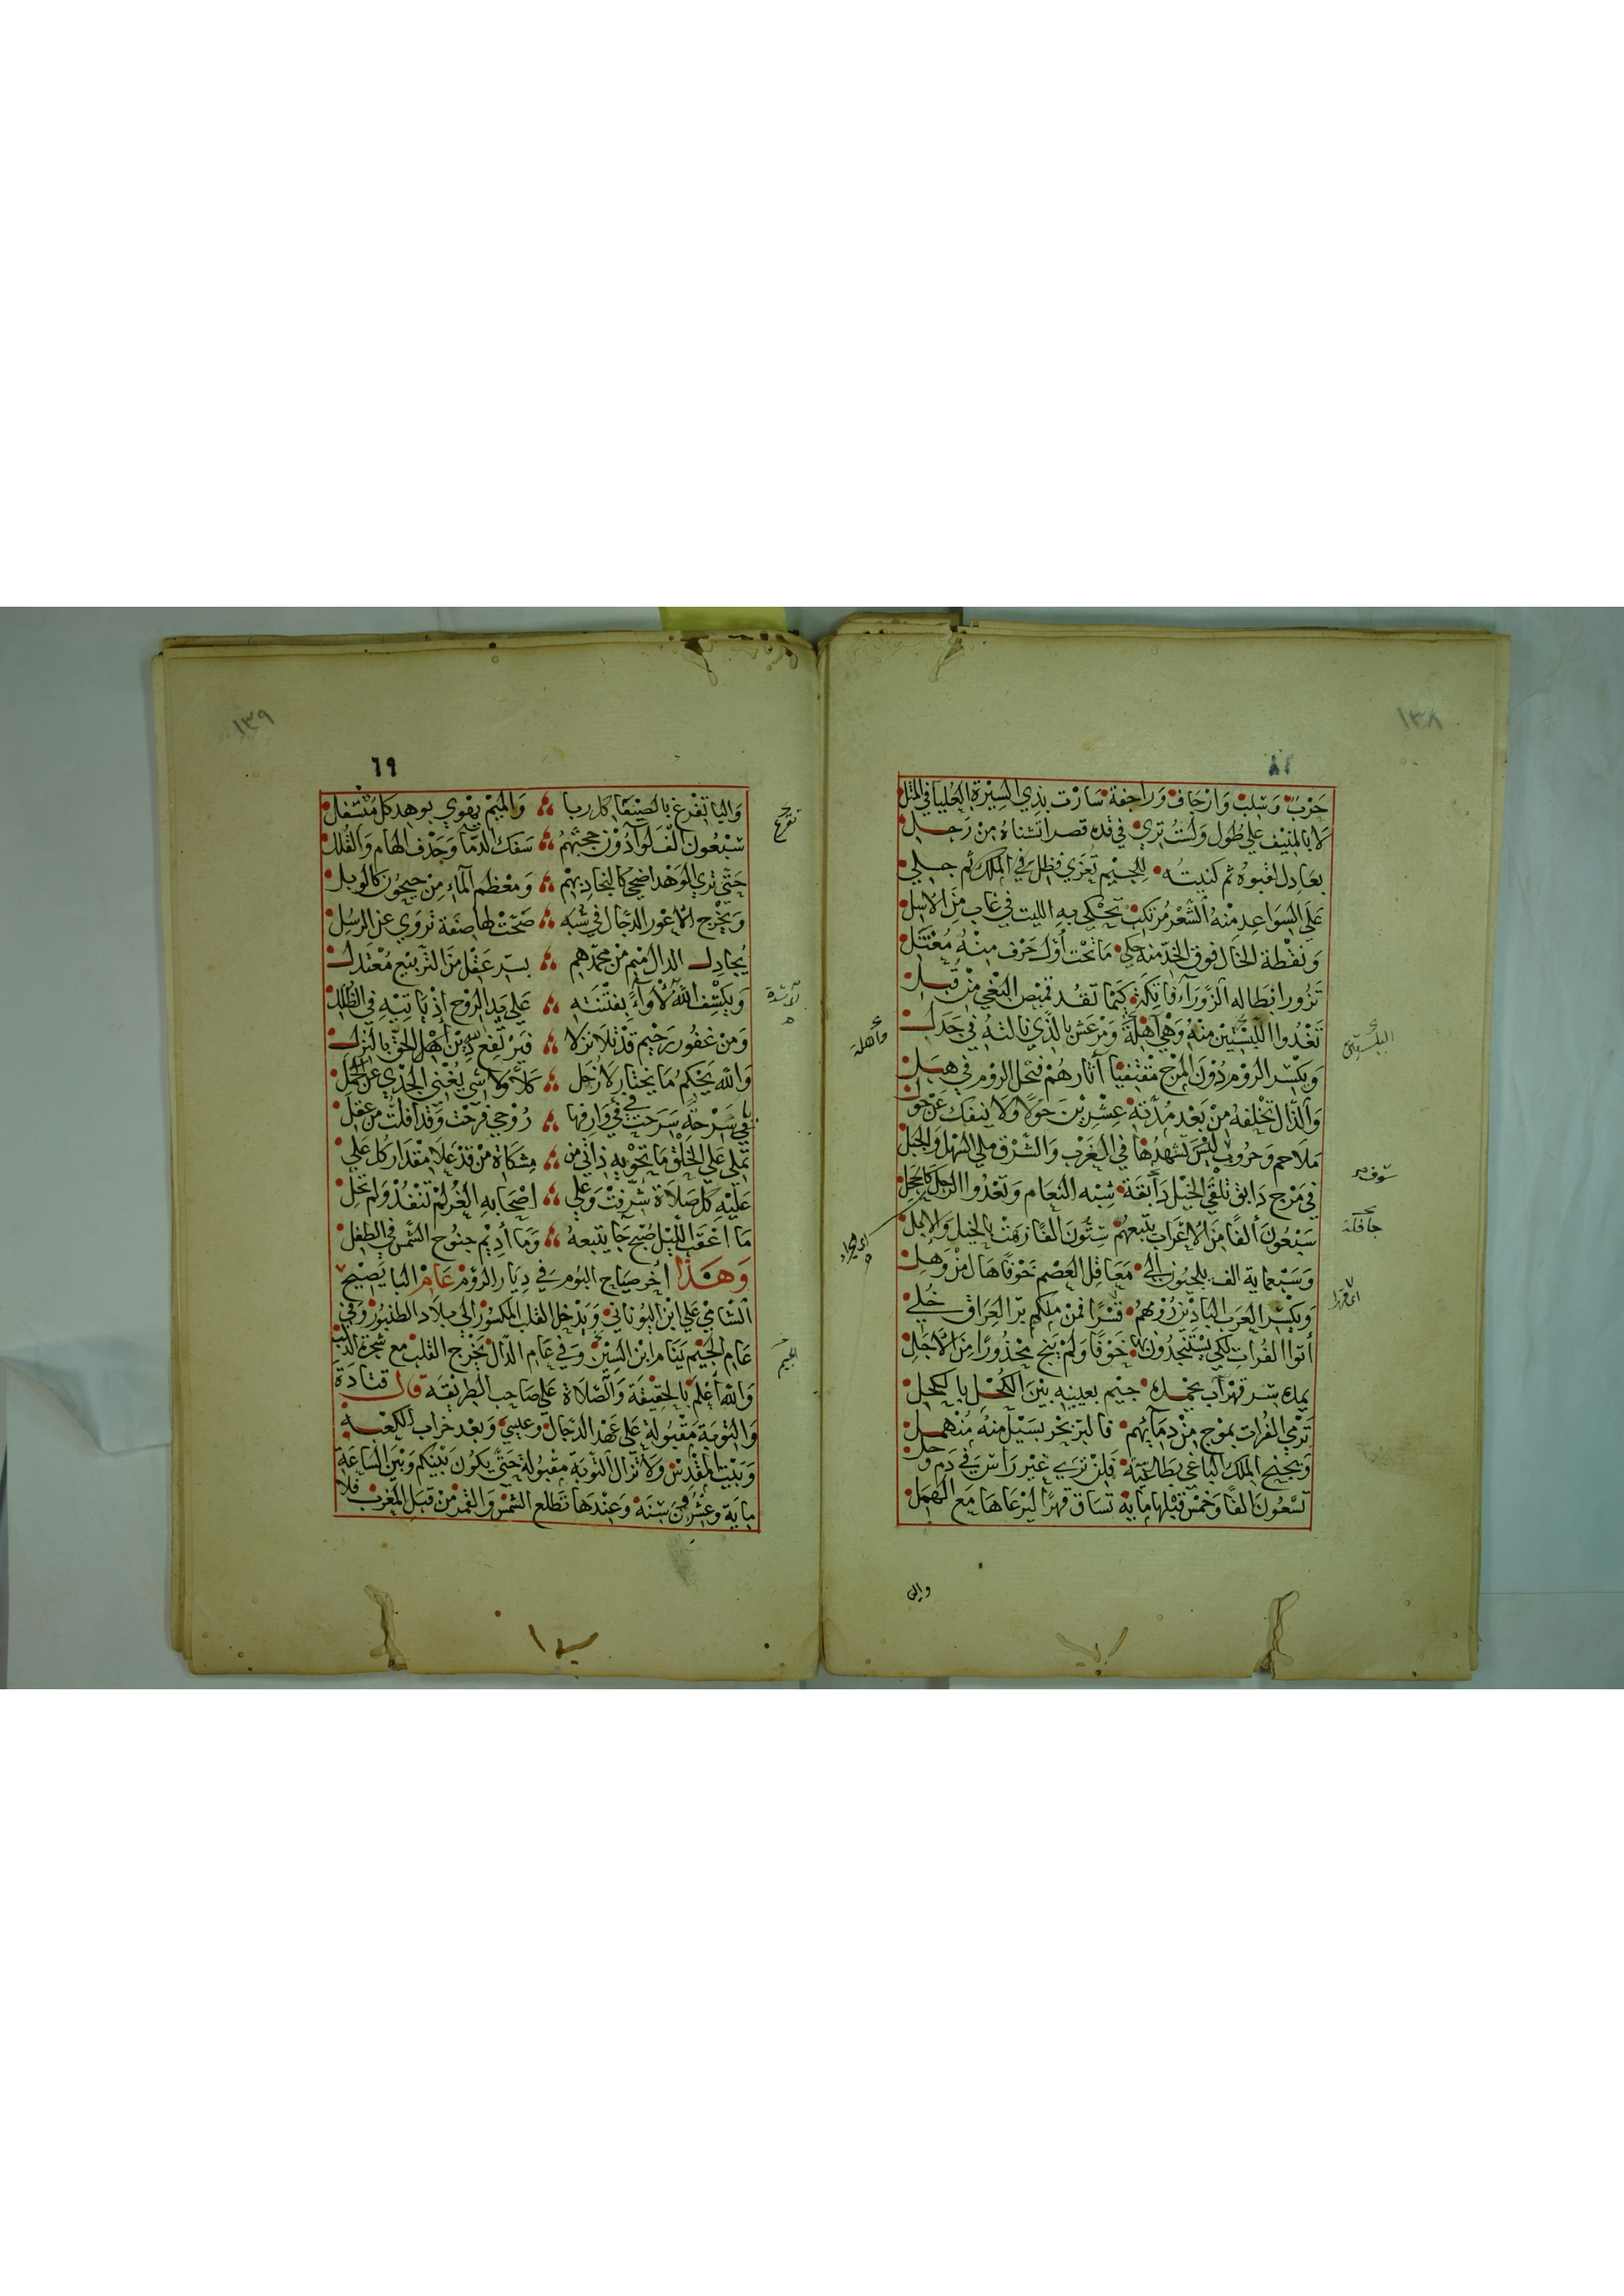 ١٣٨
٦٨
حَرْبٌ وَسَلبٌ وَارْجَافٌ وَرَاجفة سَارَت بذِي السِيْرة العُليا في المثل
لا بالمنيف علي طُول وَلستُ تري في قده قصرا تشناهُ من رَجل
بعَادِل لقبوهُ ثم كنيتُه للجيْم تعزي فظل في الملك ثم جلي
عَلَى السَواعِد منهُ الشَعْرُ مُرتكبْ تحْكى به الليث في غاب مِنَ الاسل
وَنقطة الخَال فوق الخدّ منه حكي مَا تحْت أوّل حَرْف منهُ مُعْتَل
تَزُور ابطاله الزّورَآءَ فاتِكة كيْمَا تقُد قميْص البَغي مِنْ قبل
تغْدُوا اللّيسَتَيْن مِنهُ وَهْي آهلَةٌ وَمرْعَش بالَّذِي نالتهُ في جَدَل
وَيكسْر الروْم دُوْنَ المَرْج مقْتفيًا آثارهُمْ فتحل الروْم في هبَل
وَالدّال تخلفهُ مِنْ بَعْد مُدّته عِشْرِيْنَ حَوْلا وَلا ينفك عَنْ حول
مَلاحم وَحرُوبٌ ليْسَ تَشهدُهَا في الغَرْب وَالشَّرْق ملي السَهْل وَالجَبَل
في مَرْج دَابق تلقي الخيْل دَآبقَة شبْه النعَام وَتعْدُوا الرجل كالعجل
سَبْعُونَ ألفًا مِنَ الاعْرَاب يتبعهُم ستُّونَ ألفًا زهَتْ بالخيل وَالابل
وَسَبْعماية الف للجنوب الي مَعَاقل العصْم خَوْفا هَال مِنْ وَهل
وَيكسْر العَرَب البَاديْن رُومهمُ قسْرًا فمنْ ملكهم برّ العِرَاق خُلي
أتوا الفُرات لكي يسْتنجدُون به خَوْفًا وَلمْ ينج محْذُورًا مِنَ الأجَل
يمده سر قهرْ آب بخمْده جيْم بعينيه بَيْنَ الكُحْل بالكحل
تَرْمي الفُرات بمَوْج مِنْ دِمَآئهُم فالبَرّ بحْر بسَيْل منهُ مُنْهمل
وَيجْنح الملك الباغي بطَالبهُ فلنْ تَرَي غيْر رَأس في دَم وَحل
تسْعُونَ الفًا وَخمْس قبْلهَا مايه تسَاق قهرًا ليرْعَاهَا مَعَ الهَمَل
والي
جافلة
١٣٩
٦٩
وَاليا تفْرغ بالصنفا كل ربا وَالميْمُ يهْوي بوهد كل مُتسفل
سَبْعُون الف لوا دُوْن حجبّهمُ سَفك الدمآ وَحَذف الهَام وَالقُلل
حَتّى تري الوَهْد اضحي كالنجاد بهْم وَمعْظم المآء مِنْ جيحُون كالوبل
وَيخْرج الاعْور الدجَال في شُبَه صَحّت لها صفَة تروي عن الرسل
يُجادِل الدال مُيم مِنْ محمّدهم بسرّ عَقْل مِنَ التَرْبيْع مُعْتدل
وَيكشْف اللّهُ لأوآءً بفتْنَته عَلي يد الروْح إذ يَاتيْه في الظُلل
وَمن غفُور رَحيْم قدْ تلا نزلا فيَرْتفعْ دِيْن أهْل الحَقّ بالنزل
وَاللّه يَحْكمُ مَا يختَار لا زُحل كَلّا وَلا شي يُغْني الجَدْي عن الحمَل
يا في سَرْحَة سَرَحَتْ في فَيء وَارفها رُوْحي فرحْت وَقد أفلتّ من عقل
تملي عَلى الخَلْق مَا تحْويه ذاتي من مِشكَاة مَنْ قدْ عَلا مقْدَار كل علي
عَليْه كل صَلاة شُرّفتْ وَعلي اصْحَابه الغُر لمْ تنفُذْ وَلم تحل
مَا اعْقَبَ اللّيْل صُبْح جَا يتبعهُ وَمَا أديْم جنوح الشّمس في الطفل
وَهَذَا آخر صياح البُوم في دِيَار الروْمْ عَامْ البا يَصيْح
الشامي عَلي ابْن اليُوناني وَيدْخل القلب المكسُوْر الي بلاد الطنبُوْر وَفي
عَام الجيْم يَنام ابْن السِيْن وَفي عَام الدّال يَخرج القلب مع شجرة الذهب
وَاللّه أعْلمْ بالحقِيْقَة وَالصّلاة عَلي صَاحِب الطريْقَه قال قتادَة
وَالتوْبَة مَقْبُولة عَلي عَهْد الدّجال وَعيسي وَبعْد خراب الكعْبه
وَبَيْت المقْدِس وَلا تزال التّوبَة مقْبُولة حَتّى يكوُن بَيْنكم وَبَيْن السَاعَة
مايَة وَعشْرُونَ سَنَة وَعنْدهَا تطلع الشمْس وَالقمَر مِن قبَل المغرب فلا
الجيم